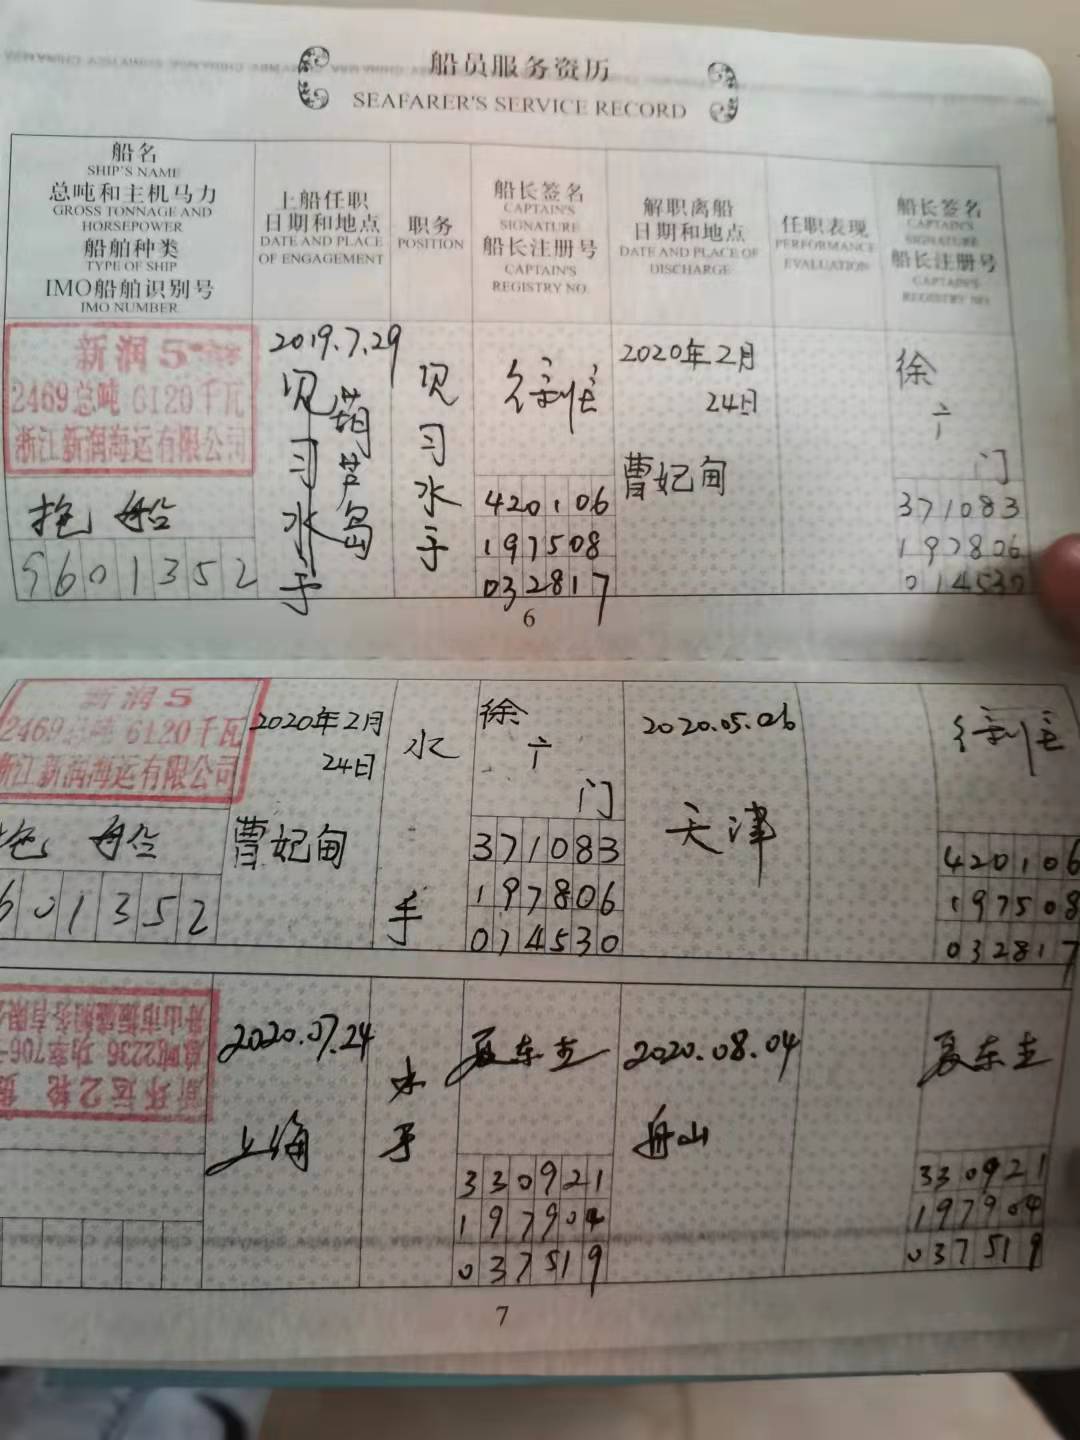 船员服务资历
SEAFARER'S SERVICE RECORD
船名
SHIP'S NAME
总吨和主机马力
GROSS TONNAGE AND
HORSEPOWER
船舶种类
TYPE OF SHIP
IMO船舶识别号
IMO NUMBER
上船任职
日期和地点
DATE AND PLACE
OF ENGAGEMENT
职务
POSITION
船长签名
CAPTAIN'S
SIGNATURE
船长注册号
CAPTAIN'S
REGISTRY NO.
解职离船
日期和地点
DATE AND PLACE OF
DISCHARGE
任职表现
PERFORMANCE
EVALUATION
船长签名
CAPTAIN'S
SIGNATURE
船长注册号
CAPTAIN'S
REGISTRY NO.
新润5
2469总吨 6120千瓦
浙江新润海运有限公司
拖船
9601352
2019.7.29
见习水手
葫芦岛
见习水手
420106
197508
032817
2020年2月
24日
曹妃甸
徐
门
371083
197806
014530
6
新润5
2469总吨 6120千瓦
浙江新润海运有限公司
拖船
601352
2020年2月
24日
曹妃甸
水手
徐
门
371083
197806
014530
2020.05.06
天津
420106
197508
032817
新环运2轮
总吨2236 功率706
舟山市
2020.07.24
上海
水手
夏东
330921
197904
037519
2020.08.04
舟山
夏东
330921
197904
037519
7